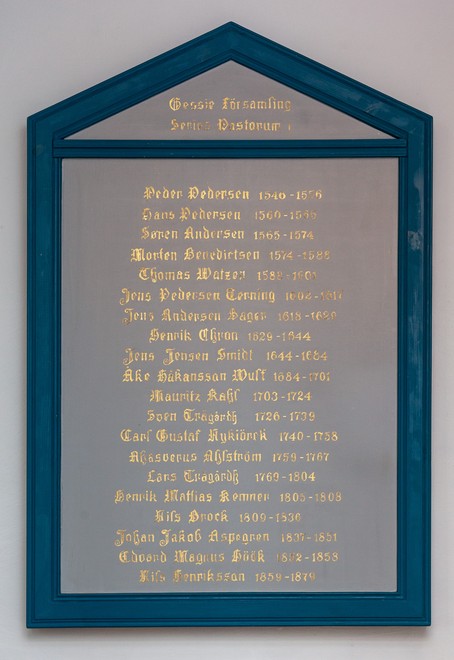 Gessie Församling
Series Pastorum
Peder Pedersen 1540-1556
Hans Pedersen
Søren Andersen 1565-1574
Morten Benedictsen 1574-1588
Thomas Watzer
Jens Pedersen Terning 1602-1617
Jens Andersen Sager 1618-1629
Henrik Chron 1629-1644
Jens Jensen Smidt 1644-1684
Åke Håkansson Wulf 1684-1701
Mauritz Kahl 1703-1724
Sven Trägårdh 1726-1739
Carl Gustaf 1740-1758
Ahasverus Ahlström 1759-1767
Lars Trägårdh 1769-1804
Henrik Mattias Kemner 1805-1808
Nils Brock 1809-1836
Johan Jakob Aspegren 1837-1851
Edvard Magnus 1852-1858
Nils Henriksson 1859-1879